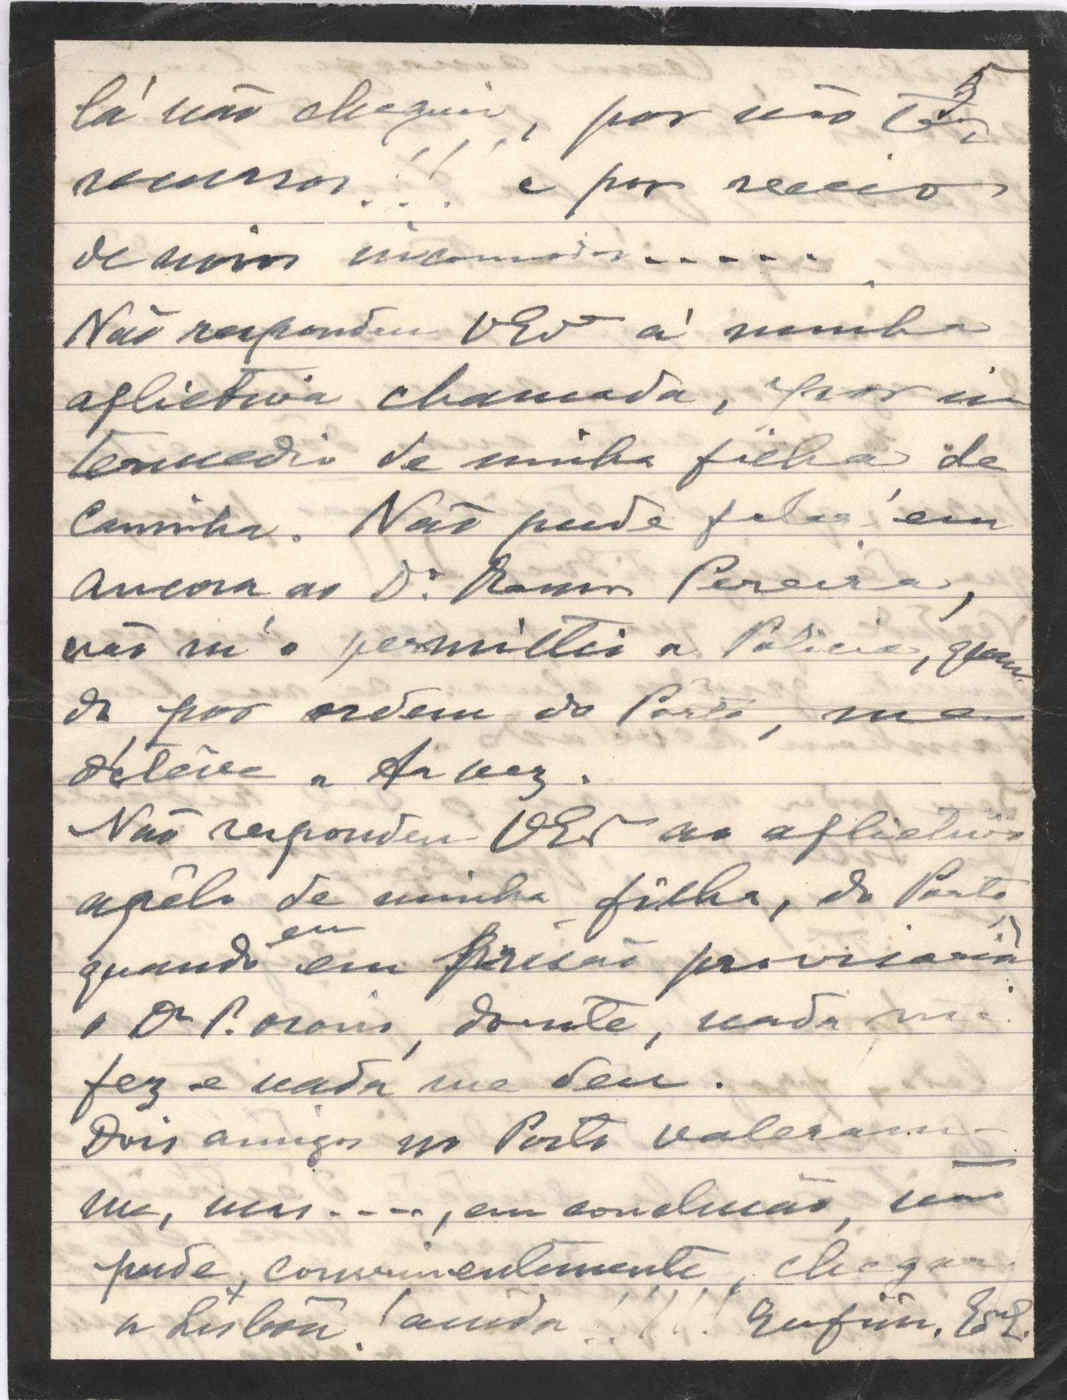 5
lá não cheguei, por não ter
recursos!!! e por receio
de novos incomodos.....
Não respondeu VEx.ª á minha
aflictiva chamada, por in
termedio de minha filha de
Caminha. Não pude falar em
Ancora ao Dr. Ramos Pereira,
não m'o permittio a Policia, quan-
do por ordem do Porto, me
deteve a 1.ª vez.
Não respondeu VEx.ª ao aflictivo
apêlo de minha filha, do Porto
quando eu em prisão provisoria
o Dr. P. Osorio, doente, nada me
fez e nada me deu.
Dois amigos no Porto valeram-
me, mas...., em conclusão, não
pude, convenientemente, chegar
a Lisbôa! ainda!!!!! Emfim,